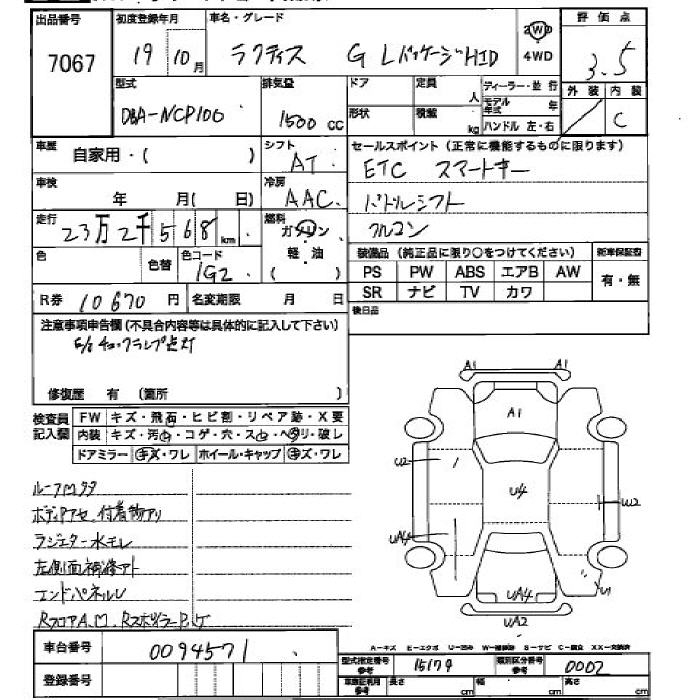 出品番号 初度登録年月 車名・グレード 評価点
7067 19 10月 ラクティス G LパッケージHID 2WD 4WD 3.5
型式 排気量 ドア 定員 人 ディーラー・並行 外装 内装
DBA-NCP100 1500cc 形状 積載 kg モデル年式 年 ハンドル 左・右 C
車歴 自家用・( ) シフト AT セールスポイント (正常に機能するものに限ります)
ETC スマートキー
車検 年 月( 日) 冷房 AAC パドルシフト
走行 23万2千568km 燃料 ガソリン 軽・油 ( ) フルコン
色 色替 色コード 1G2 装備品 (純正品に限り○をつけてください) 新車保証書
PS PW ABS エアB AW 有・無
R券 10670円 名変期限 月 日 SR ナビ TV カワ
注意事項申告欄 (不具合内容等は具体的に記入して下さい) 後日品
E/g チェックランプ点灯
修復歴 有 (箇所 )
検査員記入欄 FW キズ・飛石・ヒビ割・リペア跡・X要
内装 キズ・汚れ・コゲ・穴・スレ・ヘタリ・破レ
ドアミラー キズ・ワレ ホイール・キャップ キズ・ワレ
A1 A1
A1
U2
U4
W2
UA4
UA4
U1
UA2
ボディアセ、付着物アリ
ラジエター水モレ
左側面補修アト
エンドパネルU
A-キズ E-エクボ U-凹み W-補修跡 S-サビ C-腐食 XX-交換済
車台番号 0094571
型式指定番号 参考 15179 類別区分番号 参考 0002
登録番号 車庫証明用 参考 長さ cm 幅 cm 高さ cm